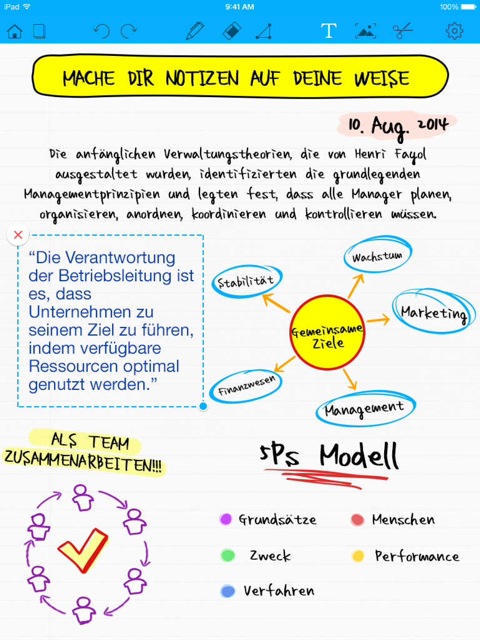 iPad 9:41 AM 100%
T
MACHE DIR NOTIZEN AUF DEINE WEISE
10. Aug. 2014
Die anfänglichen Verwaltungstheorien, die von Henri Fayol
ausgestaltet wurden, identifizierten die grundlegenden
Managementprinzipien und legten fest, dass alle Manager planen,
organisieren, anordnen, koordinieren und kontrollieren müssen.
“Die Verantwortung
der Betriebsleitung ist
es, dass
Unternehmen zu
seinem Ziel zu führen,
indem verfügbare
Ressourcen optimal
genutzt werden.”
Wachstum
Stabilität
Marketing
Gemeinsame
Ziele
Finanzwesen
Management
ALS TEAM
ZUSAMMENARBEITEN!!!
5Ps Modell
Grundsätze
Menschen
Zweck
Performance
Verfahren